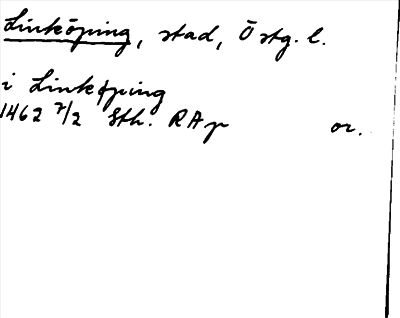 Linköping, stad, Östg. l.
i Linköping
1462 7/2 Sth. RAp or.